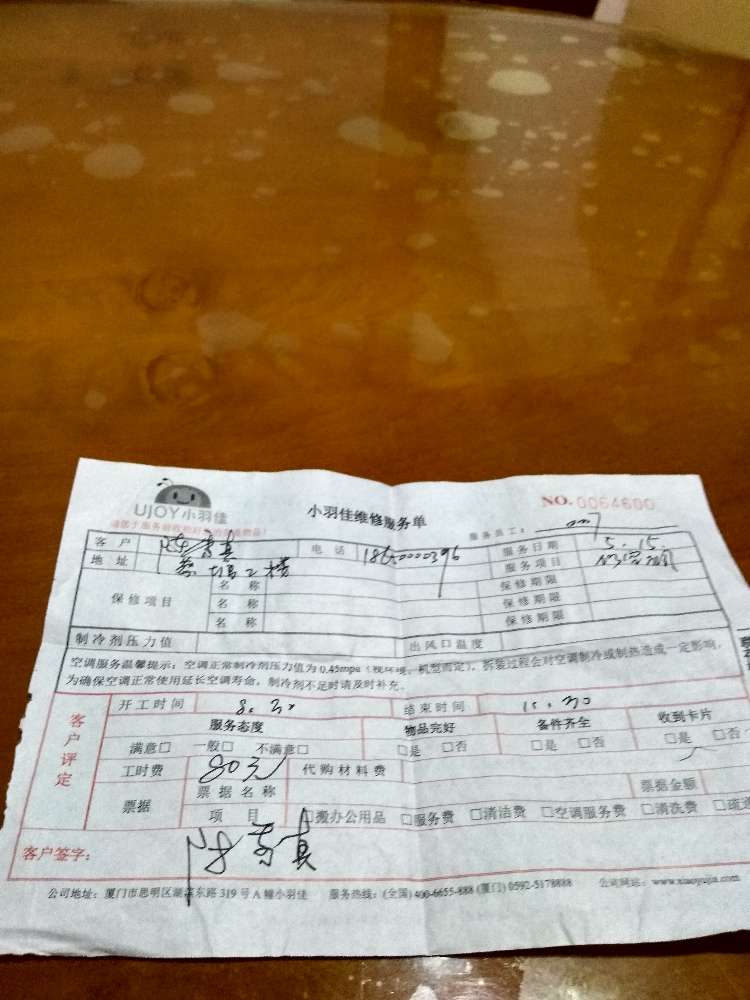 UJOY小羽佳
小羽佳维修服务单
NO. 0064600
服务员工:
客户 电话 服务日期 5.15.
地址 2楼 服务项目
保修项目 名称 保修期限
名称 保修期限
名称 保修期限
制冷剂压力值 出风口温度
空调服务温馨提示:空调正常制冷剂压力值为0.45mpa(视环境、机型而定),拆装过程会对空调制冷或制热造成一定影响,
为确保空调正常使用延长空调寿命,制冷剂不足时请及时补充。
客户评定
开工时间 8.30 结束时间 15.30
服务态度 物品完好 备件齐全 收到卡片
满意□ 一般□ 不满意□ □是 □否 □是 □否 □是 □否
工时费 80元 代购材料费
票据 票据名称 票据金额
项目 □搬办公用品 □服务费 □清洁费 □空调服务费 □清洗费 □疏通
客户签字:
公司地址:厦门市思明区湖滨东路319号A幢小羽佳 服务热线:(全国)400-6655-888 (厦门)0592-5178888 公司网站:www.xiaoyujia.com